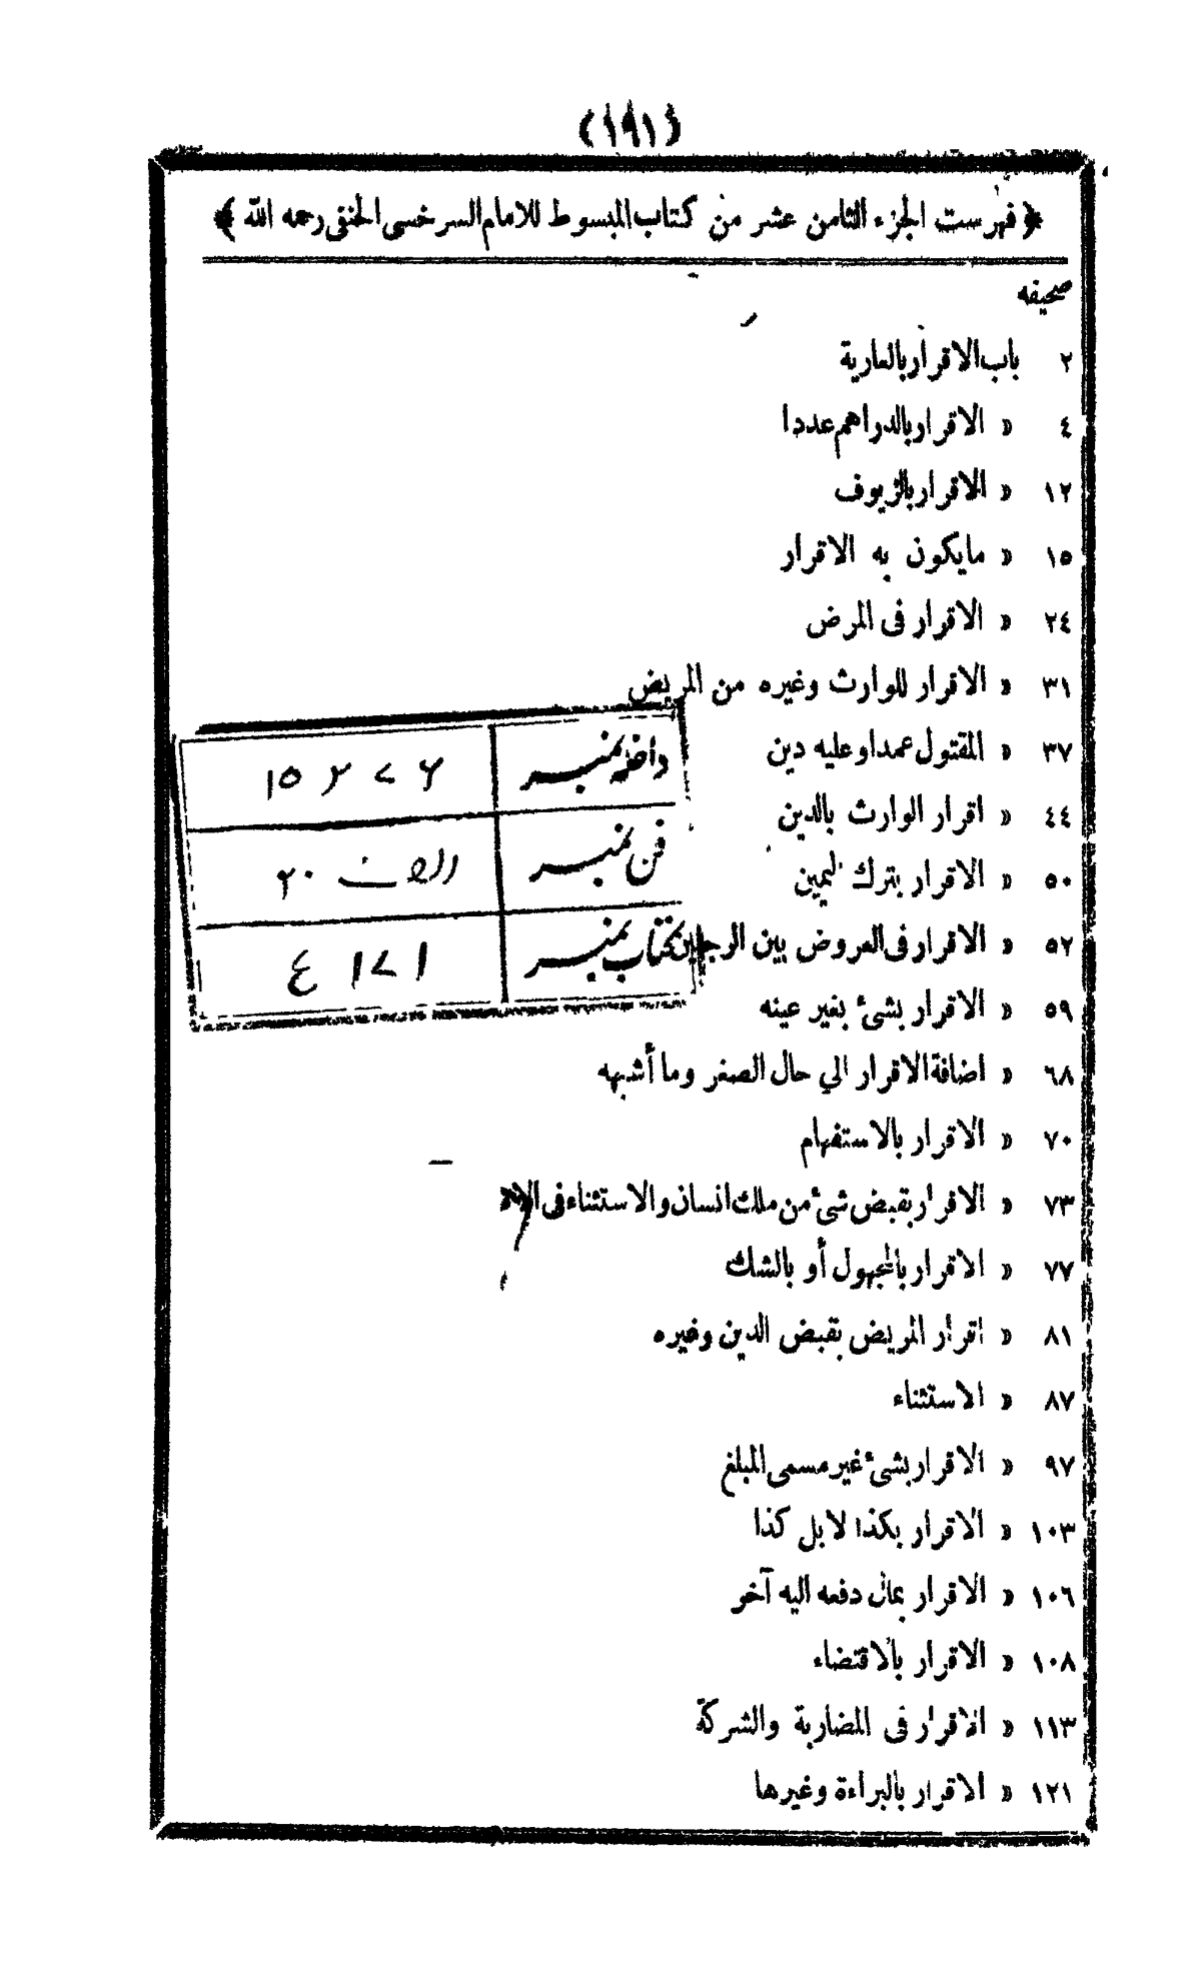 (١٩١)
﴿ فهرست الجزء الثامن عشر من كتاب المبسوط للامام السرخسى الحنفى رحمه الله ﴾
صحيفه
٢ باب الاقرار بالعارية
٤ « الاقرار بالدراهم عددا
١٢ « الاقرار بالزيوف
١٥ « مايكون به الاقرار
٢٤ « الاقرار فى المرض
٣١ « الاقرار للوارث وغيره من المريض
٣٧ « المقتول عمدا وعليه دين
٤٤ « اقرار الوارث بالدين
٥٠ « الاقرار بترك اليمين
٥٢ « الاقرار فى العروض بين الرجلين
٥٩ « الاقرار بشئ بغير عينه
٦٨ « اضافة الاقرار الي حال الصغر وما أشبهه
٧٠ « الاقرار بالاستفهام
٧٣ « الاقرار بقبض شئ من ملك انسان والاستثناء فى
٧٧ « الاقرار بالمجهول أو بالشك
٨١ « اقرار المريض بقبض الدين وغيره
٨٧ « الاستثناء
٩٧ « الاقرار بشئ غير مسمى المبلغ
١٠٣ « الاقرار بكذا لا بل كذا
١٠٦ « الاقرار بمال دفعه اليه آخر
١٠٨ « الاقرار بالاقتضاء
١١٣ « الاقرار فى المضاربة والشركة
١٢١ « الاقرار بالبراءة وغيرها
داخلہ نمبر
فن نمبر ٢٠
کتاب نمبر